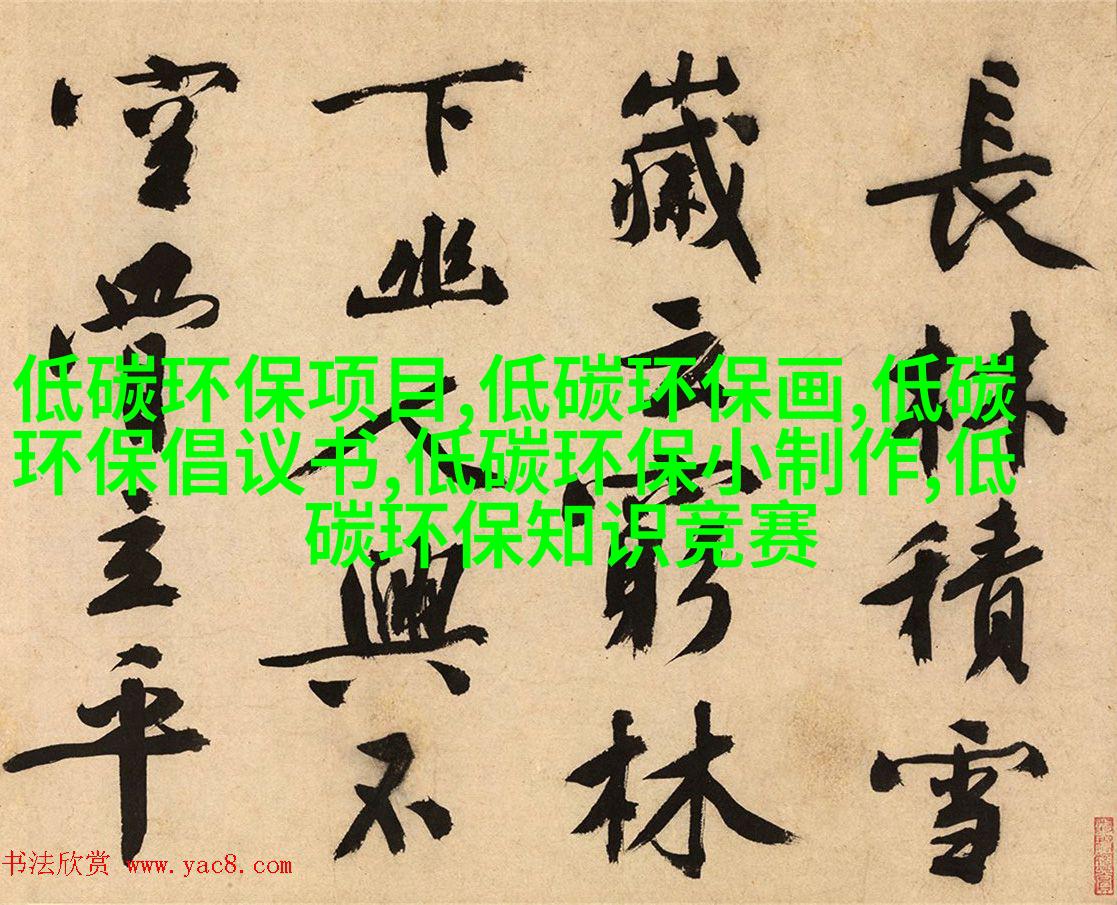 長林積雪
歲云窮林
下幽人興不
空立平
低碳环保项目,低碳环保画,低碳
环保倡议书,低碳环保小制作,低
碳环保知识竞赛
书法欣赏 www.yac8.com